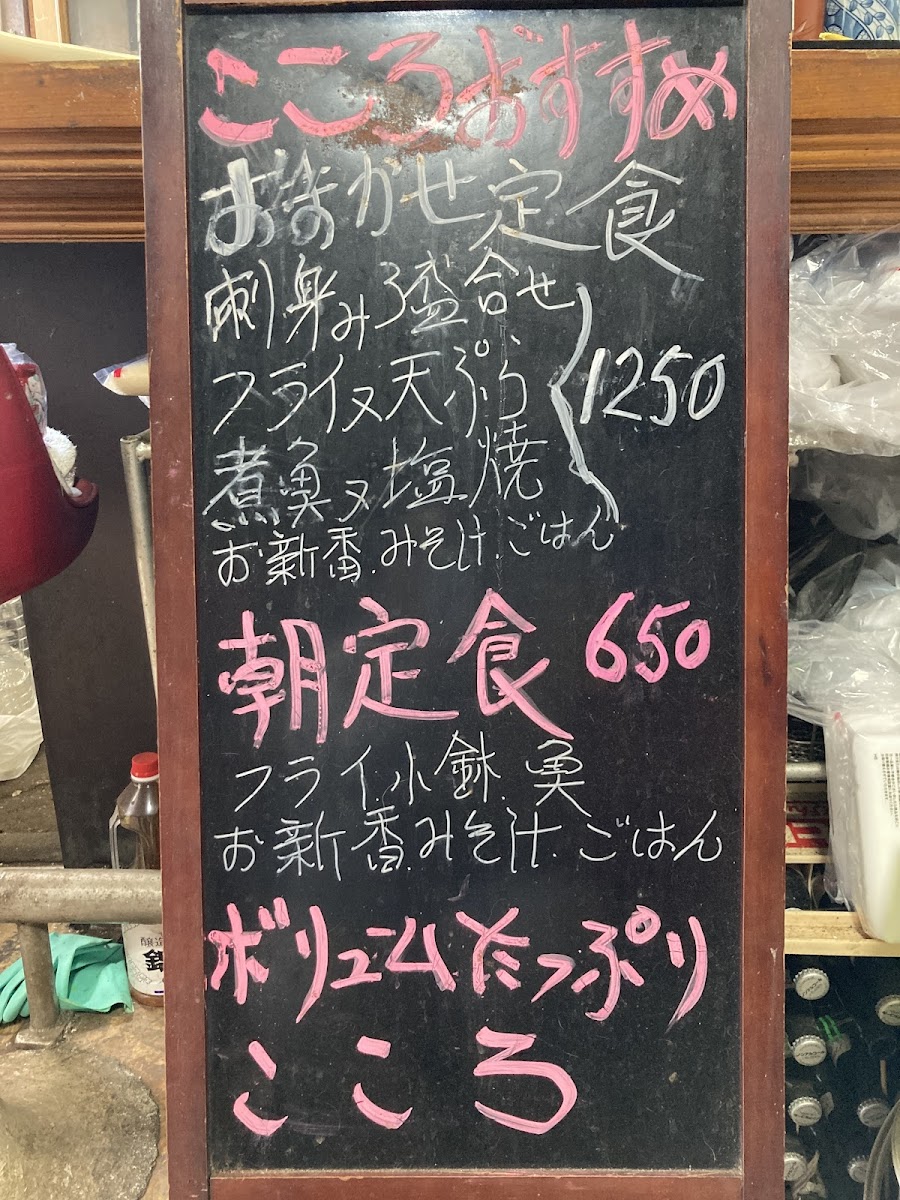 こころおすすめ
おまかせ定食
刺身み3盛合せ
フライヌ天ぷら
1250
煮魚ヌ塩焼
お新番.みそ汁.ごはん
朝定食 650
フライ.小鉢.魚
お新番.みそ汁.ごはん
ボリュームたっぷり
こころ